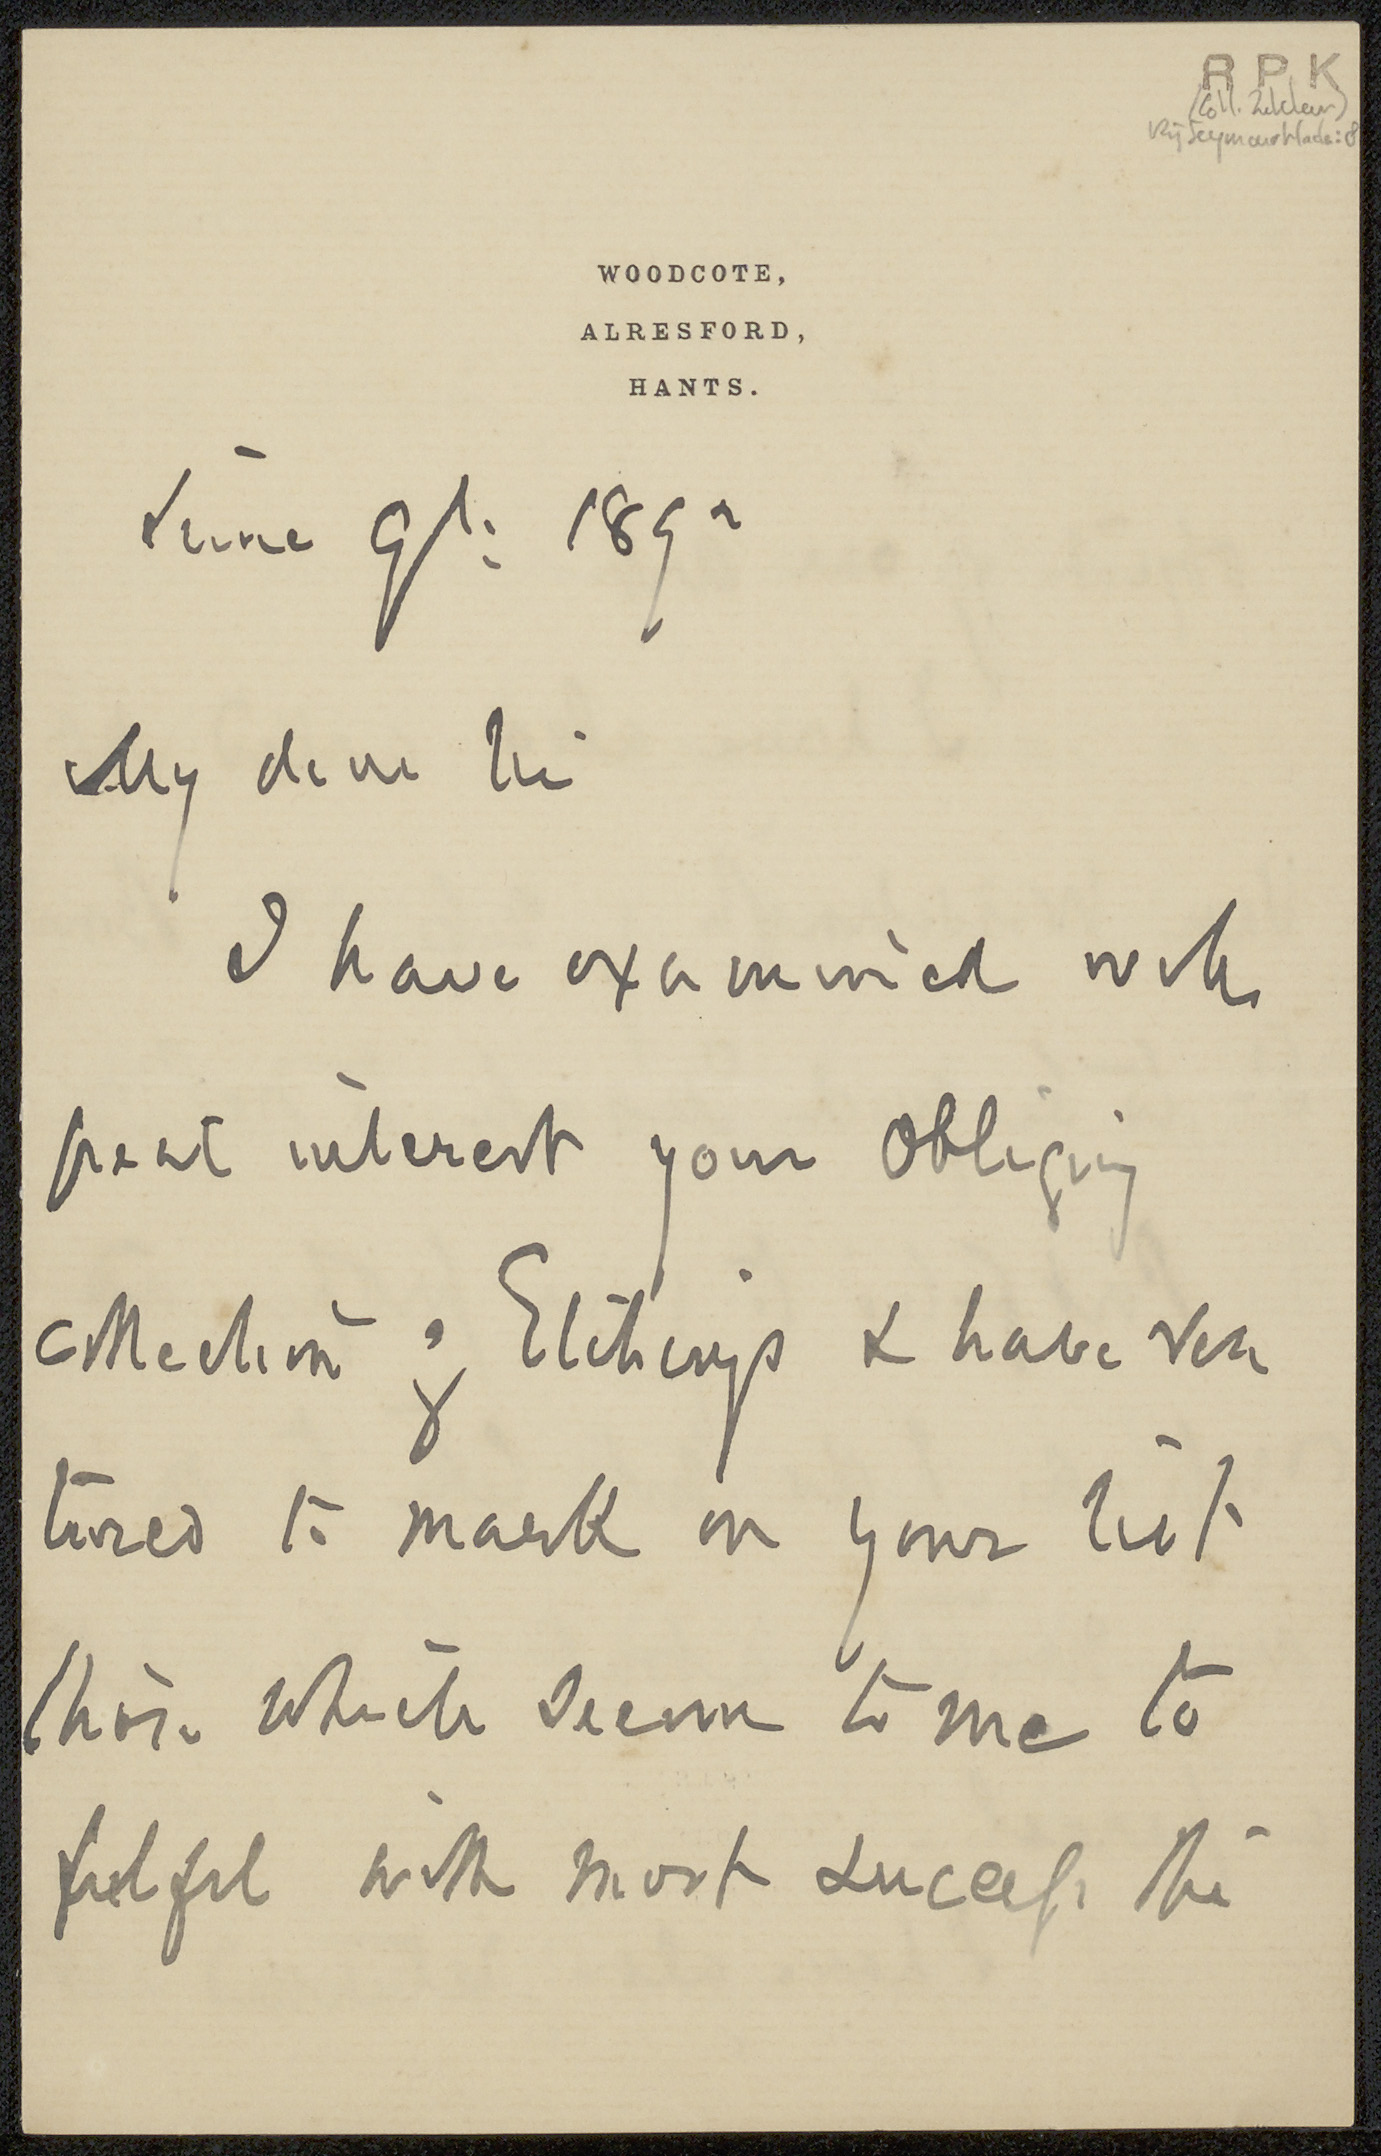 R P K
(Coll. Zilcken)
WOODCOTE,
ALRESFORD,
HANTS.
June 9th: 1892
My dear Sir
I have examined with
great interest your obliging
collection of Etchings & have ven
tured to mark on your list
those which seem to me to
fulfil with most success the